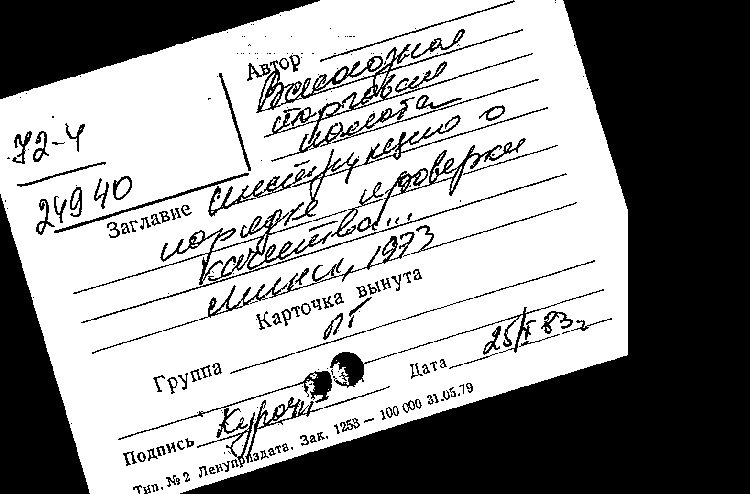 Автор Всесоюзная
торговая
палата
72-4
24940
Заглавие Инструкцию о
порядке проверки
качества...
Минск, 1973
Карточка вынута
Группа
Дата 25/X 83г
Подпись
Тип. № 2 Ленуприздата. Зак. 1253 — 100 000 31.05.79